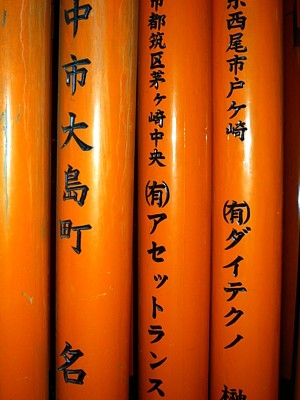 県西尾市戸ケ崎 ㈲ダイテクノ 榊
市都筑区茅ヶ崎中央 ㈲アセットランス
中市大島町 名